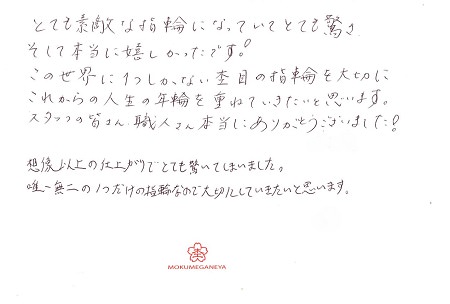 とても素敵な指輪になっていてとても驚き
そして本当に嬉しかったです!
この世界に1つしかない杢目の指輪を大切に
これからの人生の年輪を重ねていきたいと思います。
スタッフの皆さん、職人さん本当にありがとうございました!
想像以上の仕上がりでとても驚いてしまいました。
唯一無二の1つだけの指輪なので大切にしていきたいと思います。
MOKUMEGANEYA